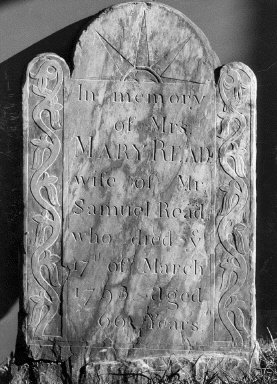 In memory
of Mrs.
MARY READ
wife of Mr
Samuel Read
who died yͤ
17th of March
aged
66 Years